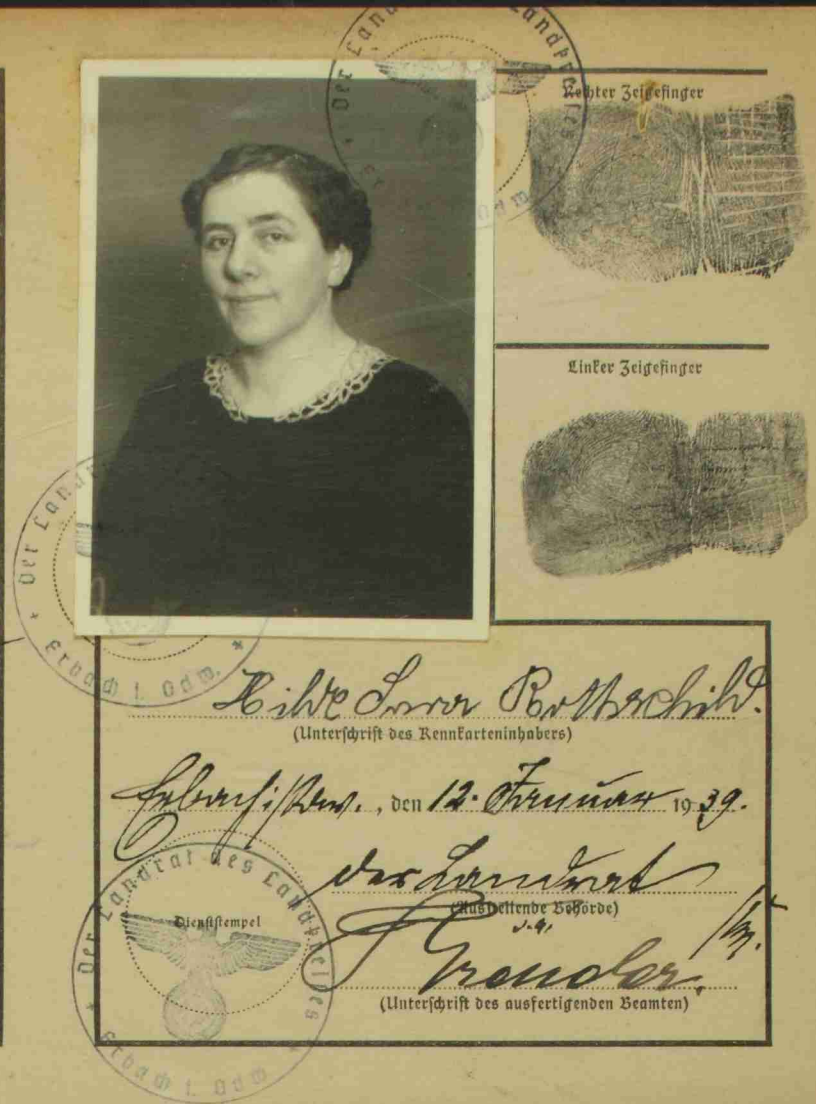 Der Landrat des Landkreises
Rechter Zeigefinger
Linker Zeigefinger
Der Landrat
Erbach i. Odw.
Hilde Sara Rothschild.
(Unterschrift des Kennkarteninhabers)
Erbach i/Odw., den 12. Januar 1939.
Der Landrat
(Ausstellende Behörde)
Dienststempel
J. A.
(Unterschrift des ausfertigenden Beamten)
Der Landrat des Landkreises
Erbach i. Odw.